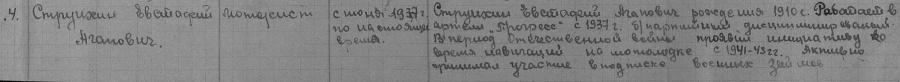 4. Струихин Евстафий моторист с июня 1937г. Струихин Евстафий Агапович рождения 1910 с. Работает в
Агапович. по настоящее артели "Прогресс" с 1937 г. б/партийный дисциплинирован.
время. В период Отечественной войны проявил инициативу во
время навигации на мотолодке с 1941-43 гг. Активно
принимал участие в подписке военных займов